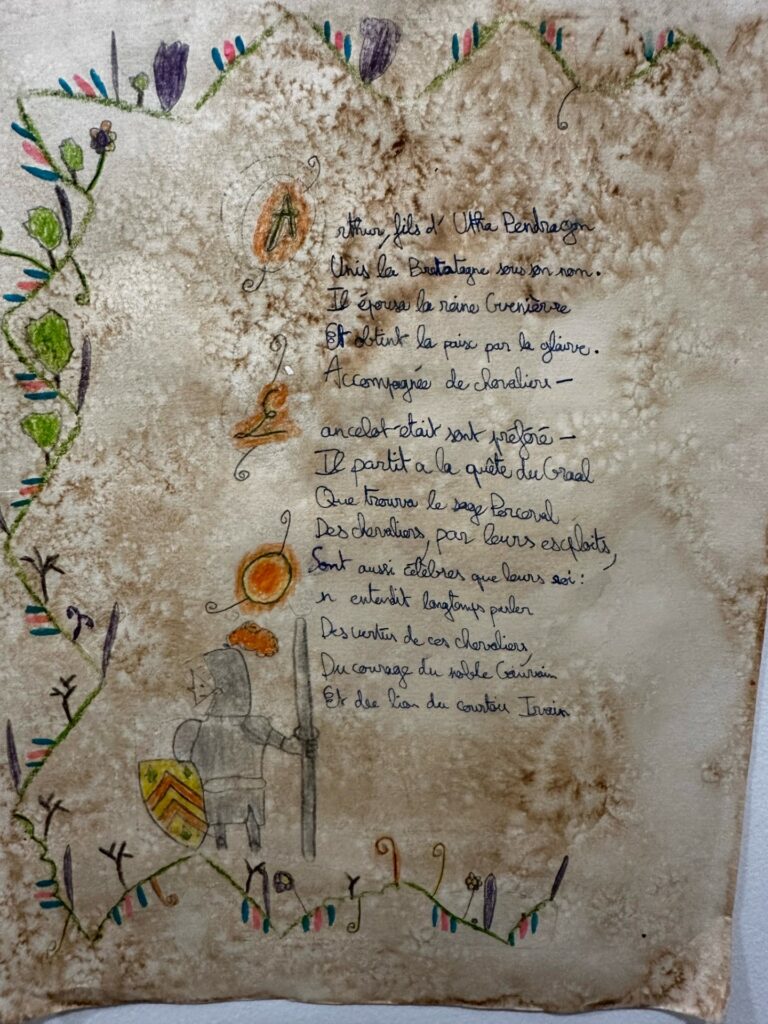 Arthur, fils d'Utha Pendragon
Unis la Bretatagne sous son nom.
Il épousa la reine Guenièvre
Et obtint la paix par la glaive.
Accompagnée de chevaliers –
Lancelot était sont préféré –
Il partit a la quête du Graal
Que trouva le sage Perceval
Des chevaliers, par leurs exploits,
Sont aussi célèbres que leurs roi :
On entendit longtemps parler
Des vertus de ces chevaliers,
Du courage du noble Gauvain
Et du lion du courtois Ivain